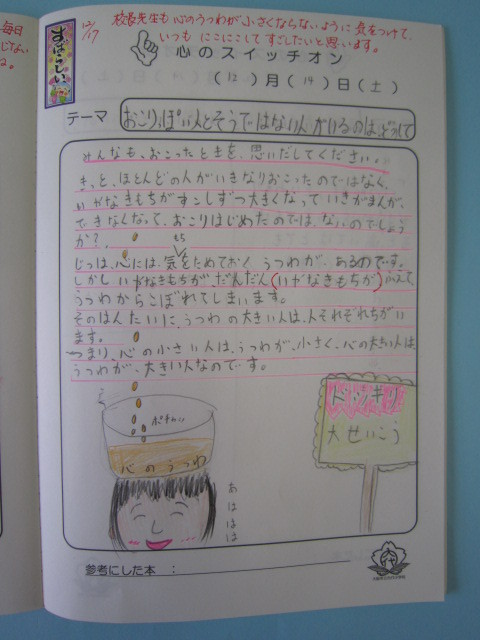 毎日
じない
ね。
12/17
校長先生も心のうつわが小さくならないように気をつけて、
いつもにこにこしてすごしたいと思います。
すばらしい
心のスイッチオン
(12)月(14)日(土)
テーマ
おこりっぽい人とそうではない人がいるのは、どうして
みんなも、おこったときを、思いだしてください。
きっと、ほとんどの人がいきなりおこったのではなく、
いやなきもちがすこしずつ大きくなっていきがまんが、
できなくなって、おこりはじめたのでは、ないのでしょう
か?
もち
じつは、心には、気をためておく、うつわが、あるのです。
しかしいやなきもちが、だんだん(いやなきもちが)ふえて、
うつわからこぼれてしまいます。
そのはんたいに、うつわの大きい人は、人それぞれちがい
ます。
つまり、心の小さい人は、うつわが、小さく、心の大きい人は、
うつわが、大きい人なのです。
ポチャン
心のうつわ
あはははは
ドッキリ
大せいこう
参考にした本 :